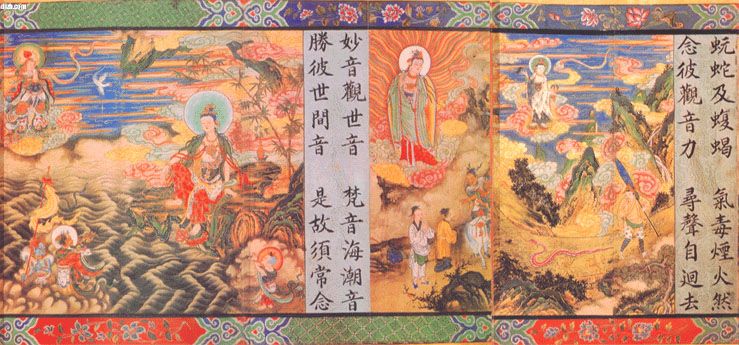 蚖蛇及蝮蝎 氣毒煙火然
念彼觀音力 尋聲自迴去
妙音觀世音 梵音海潮音
勝彼世間音 是故須常念